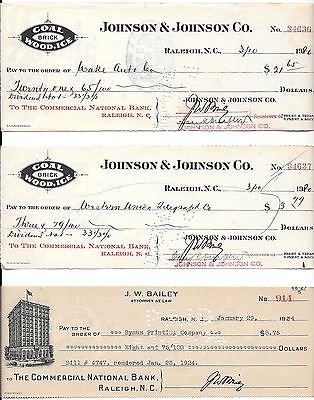 COAL
BRICK
WOOD.ICE
JOHNSON & JOHNSON CO.
No. 34636
RALEIGH, N.C. 3/10
PAY TO THE ORDER OF Wake Auto Co $21 65
Twenty one & 65/100 DOLLARS
Dividend No1 - 33 1/3%
TO THE COMMERCIAL NATIONAL BANK,
RALEIGH, N. C.
JOHNSON & JOHNSON CO.
COAL
BRICK
WOOD.ICE
JOHNSON & JOHNSON CO.
No. 34637
RALEIGH, N.C. 3/10
PAY TO THE ORDER OF Western Union Telegraph Co $3 79
Three & 79/100 DOLLARS
Dividend No1 - 33 1/3%
TO THE COMMERCIAL NATIONAL BANK,
RALEIGH, N. C.
JOHNSON & JOHNSON CO.
J. W. BAILEY
ATTORNEY AT LAW
No. 911
RALEIGH, N. C., January 29, 1924
PAY TO THE
ORDER OF Bynum Printing Company, $8.76
Eight and 76/100 DOLLARS
Bill # 4747, rendered Jan. 23, 1924.
TO THE COMMERCIAL NATIONAL BANK,
RALEIGH, N.C.
JWBailey